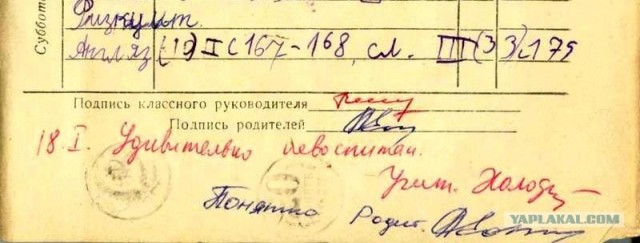 Суббота
Физкульт.
Англ яз (19) I с 167-168, сл. III (33) с 179
Подпись классного руководителя
Подпись родителей
18. I. Удивительно невоспитан.
Учит. Холодц
Понятно Родит.
YAPLAKAL.COM